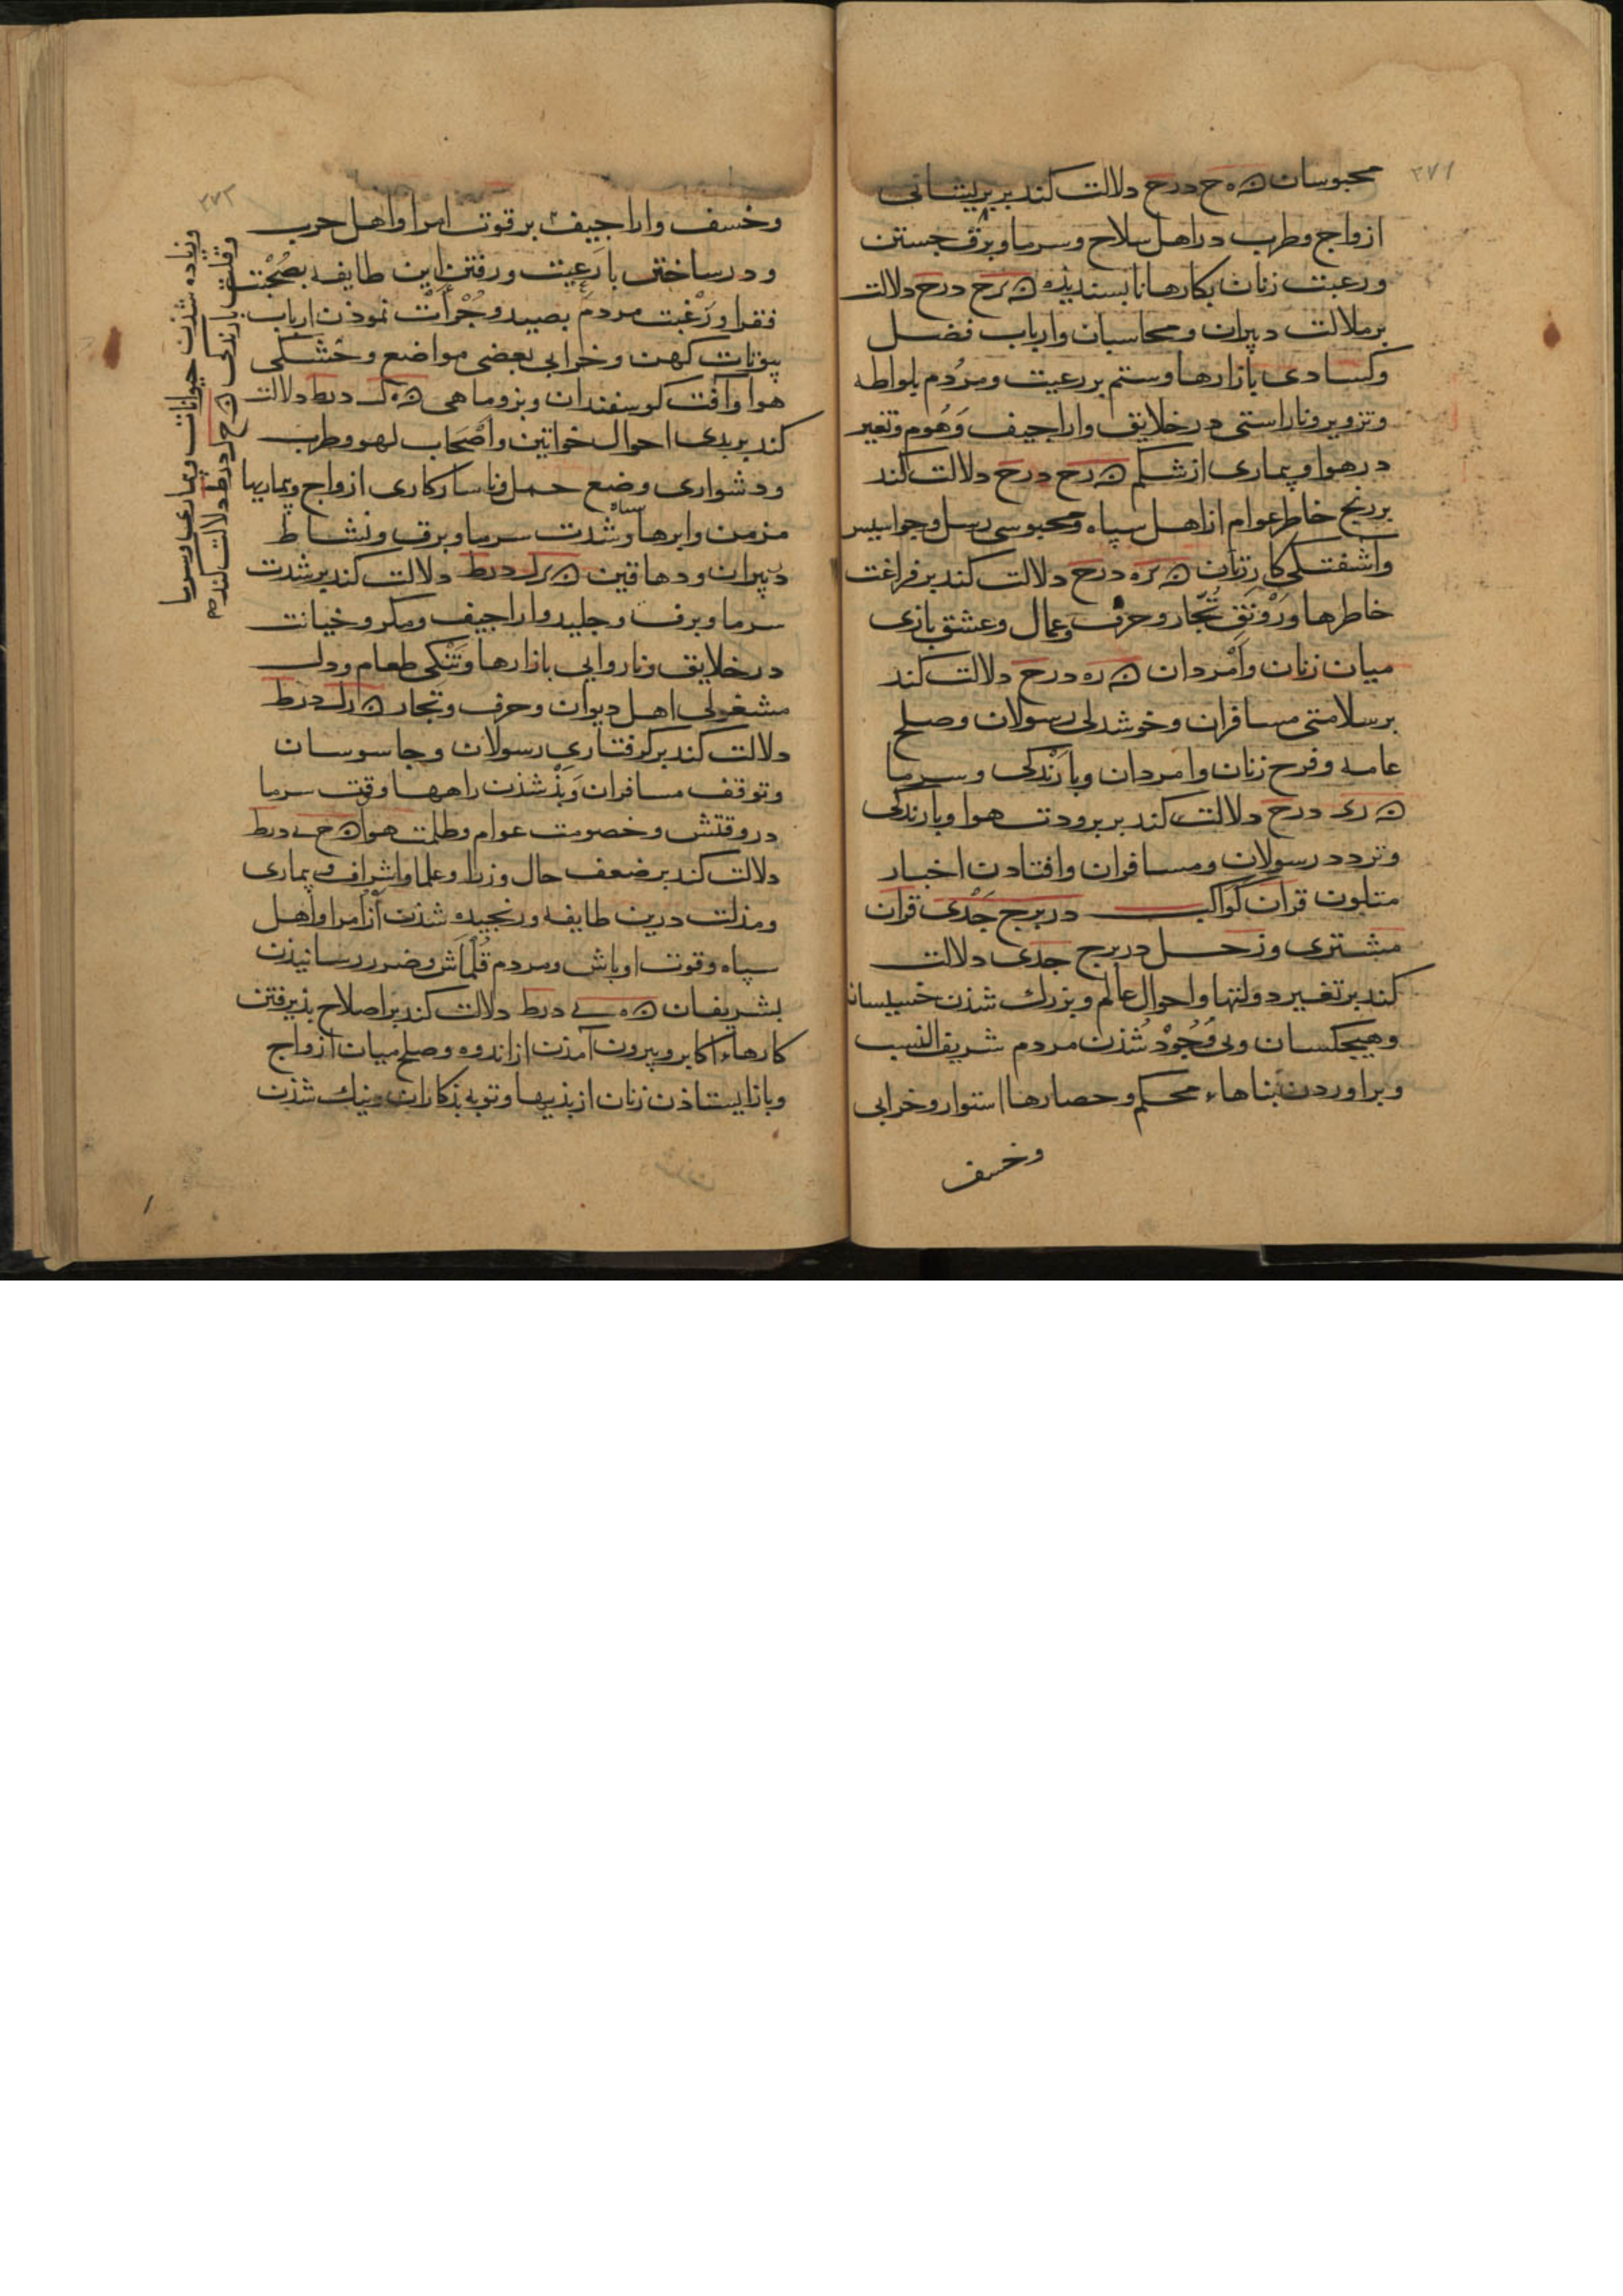 ۳۷۱
محبوسان ه ح درح دلالت کند بر پریشانی
ازواج وطرب در اهل سلاح وسرما وبرق جستن
ورغبت زنان بکارها نابسندیذه ه رح درح دلالت
بر ملالت دبیران ومحاسبان وارباب فضل
وکسادی بازارها وستم بر رعیت ومردم بلواطه
وتزویر وناراستی در خلایق واراجیف وهوم وتغیر
در هوا وبیماری از شکم ه رح درح دلالت کند
بر رنج خاطر عوام از اهل سپاه ومحبوسی رسل وجواسیس
وآشفتکی کار زنان ه ره درح دلالت کند بر فراغت
خاطرها ورونق تجار وحرف وعمال وعشق بازی
میان زنان وامردان ه ره درح دلالت کند
بر سلامتی مسافران وخوشدلی رسولان وصلح
عامه وفرح زنان وامردان وبارندکی وسرما
ه ری درح دلالت کند بر برودت هوا وبارندکی
وتردد رسولان ومسافران وافتادن اخبار
متلون قران کواکب در برج جدی قران
مشتری وزحل در برج جدی دلالت
کند بر تغییر دولتها واحوال عالم وبزرک شذن خسیسان
وهیچکسان وبی وجود شذن مردم شریف النسب
وبراوردن بناهاء محکم وحصارها استوار وخرابی
وخسف
۳۷۲
وخسف واراجیف بر قوت امرا واهل حرب
ودرساختن با رعیت ورفتن این طایفه بصحبت
فقرا ورغبت مردم بصید وجرأت نموذن ارباب
بیوتات کهن وخرابی بعضی مواضع وخشکی
هوا وآفت کوسفندان وبز وماهی ه ک درط دلالت
کند بر بدی احوال خواتین واصحاب لهو وطرب
ودشواری وضع حمل وناسازکاری ازواج وبیماریها
مزمن وابرها سیاه وشدت سرما وبرق ونشاط
دبیران ودهاقین ه رک درط دلالت کند بر شدت
سرما وبرف وجلید واراجیف ومکر وخیانت
در خلایق وناروایی بازارها وتنکی طعام ودل
مشغولی اهل دیوان وحرف وتجار ه رک درط
دلالت کند بر کرفتاری رسولان وجاسوسان
وتوقف مسافران وبذ شذن راهها وقت سرما
در وقتش وخصومت عوام وظلمت هوا ه ح ی درط
دلالت کند بر ضعف حال وزرا وعلما واشراف وبیماری
ومذلت درین طایفه ورنجیده شذن از امرا واهل
سپاه وقوت اوباش ومردم قلماش وضرر رسانیذن
بشریفان ه ه ی درط دلالت کند بر اصلاح پذیرفتن
کارهاء اکابر وبیرون آمذن از اندوه وصلح میان ازواج
وباز ایستاذن زنان از بذیها وتوبه بذکاران ونیک شذن
وقلت بارندکی ه ح ا درط دلالت کند بر
وزیاده شذن حیوانات وبیماری وسرما